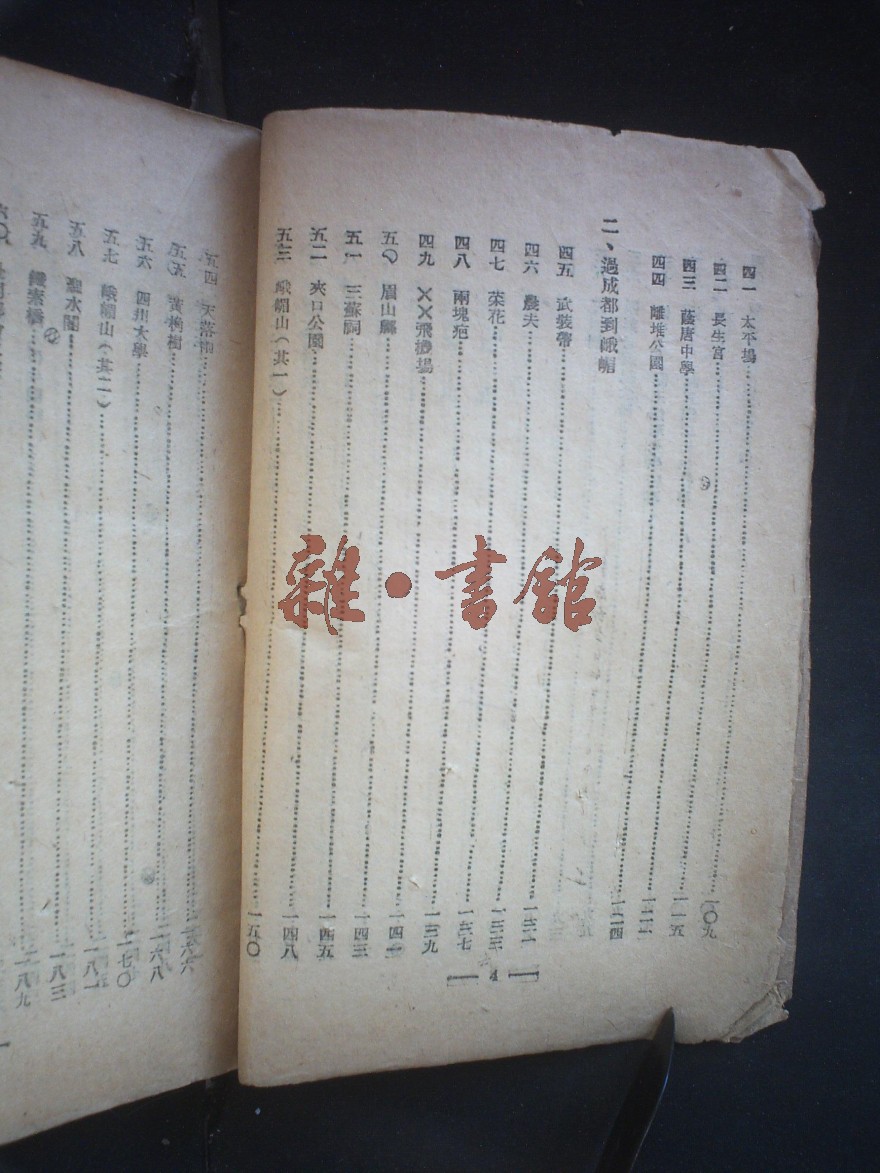 四一 太平場……一〇九
四二 長生宮……一一五
四三 蔭唐中學……
四四 離堆公園……一二四
二、過成都到峨嵋
四五 武裝帶……
四六 農夫……一三三
四七 菜花……一三七
四八 兩塊疤……一三九
四九 ××飛機場……一四一
五〇 眉山縣……一四三
五一 三蘇祠……一四五
五二 夾口公園……一四八
五三 峨嵋山（其一）……一五〇
— 4 —
五四 天落雨……
五五 黃桷樹……一六八
五六 四川大學……一七〇
五七 峨嵋山（其二）……一八一
五八 聖水閣……一八三
五九 鐵索橋……一八九
六〇
雜·書館